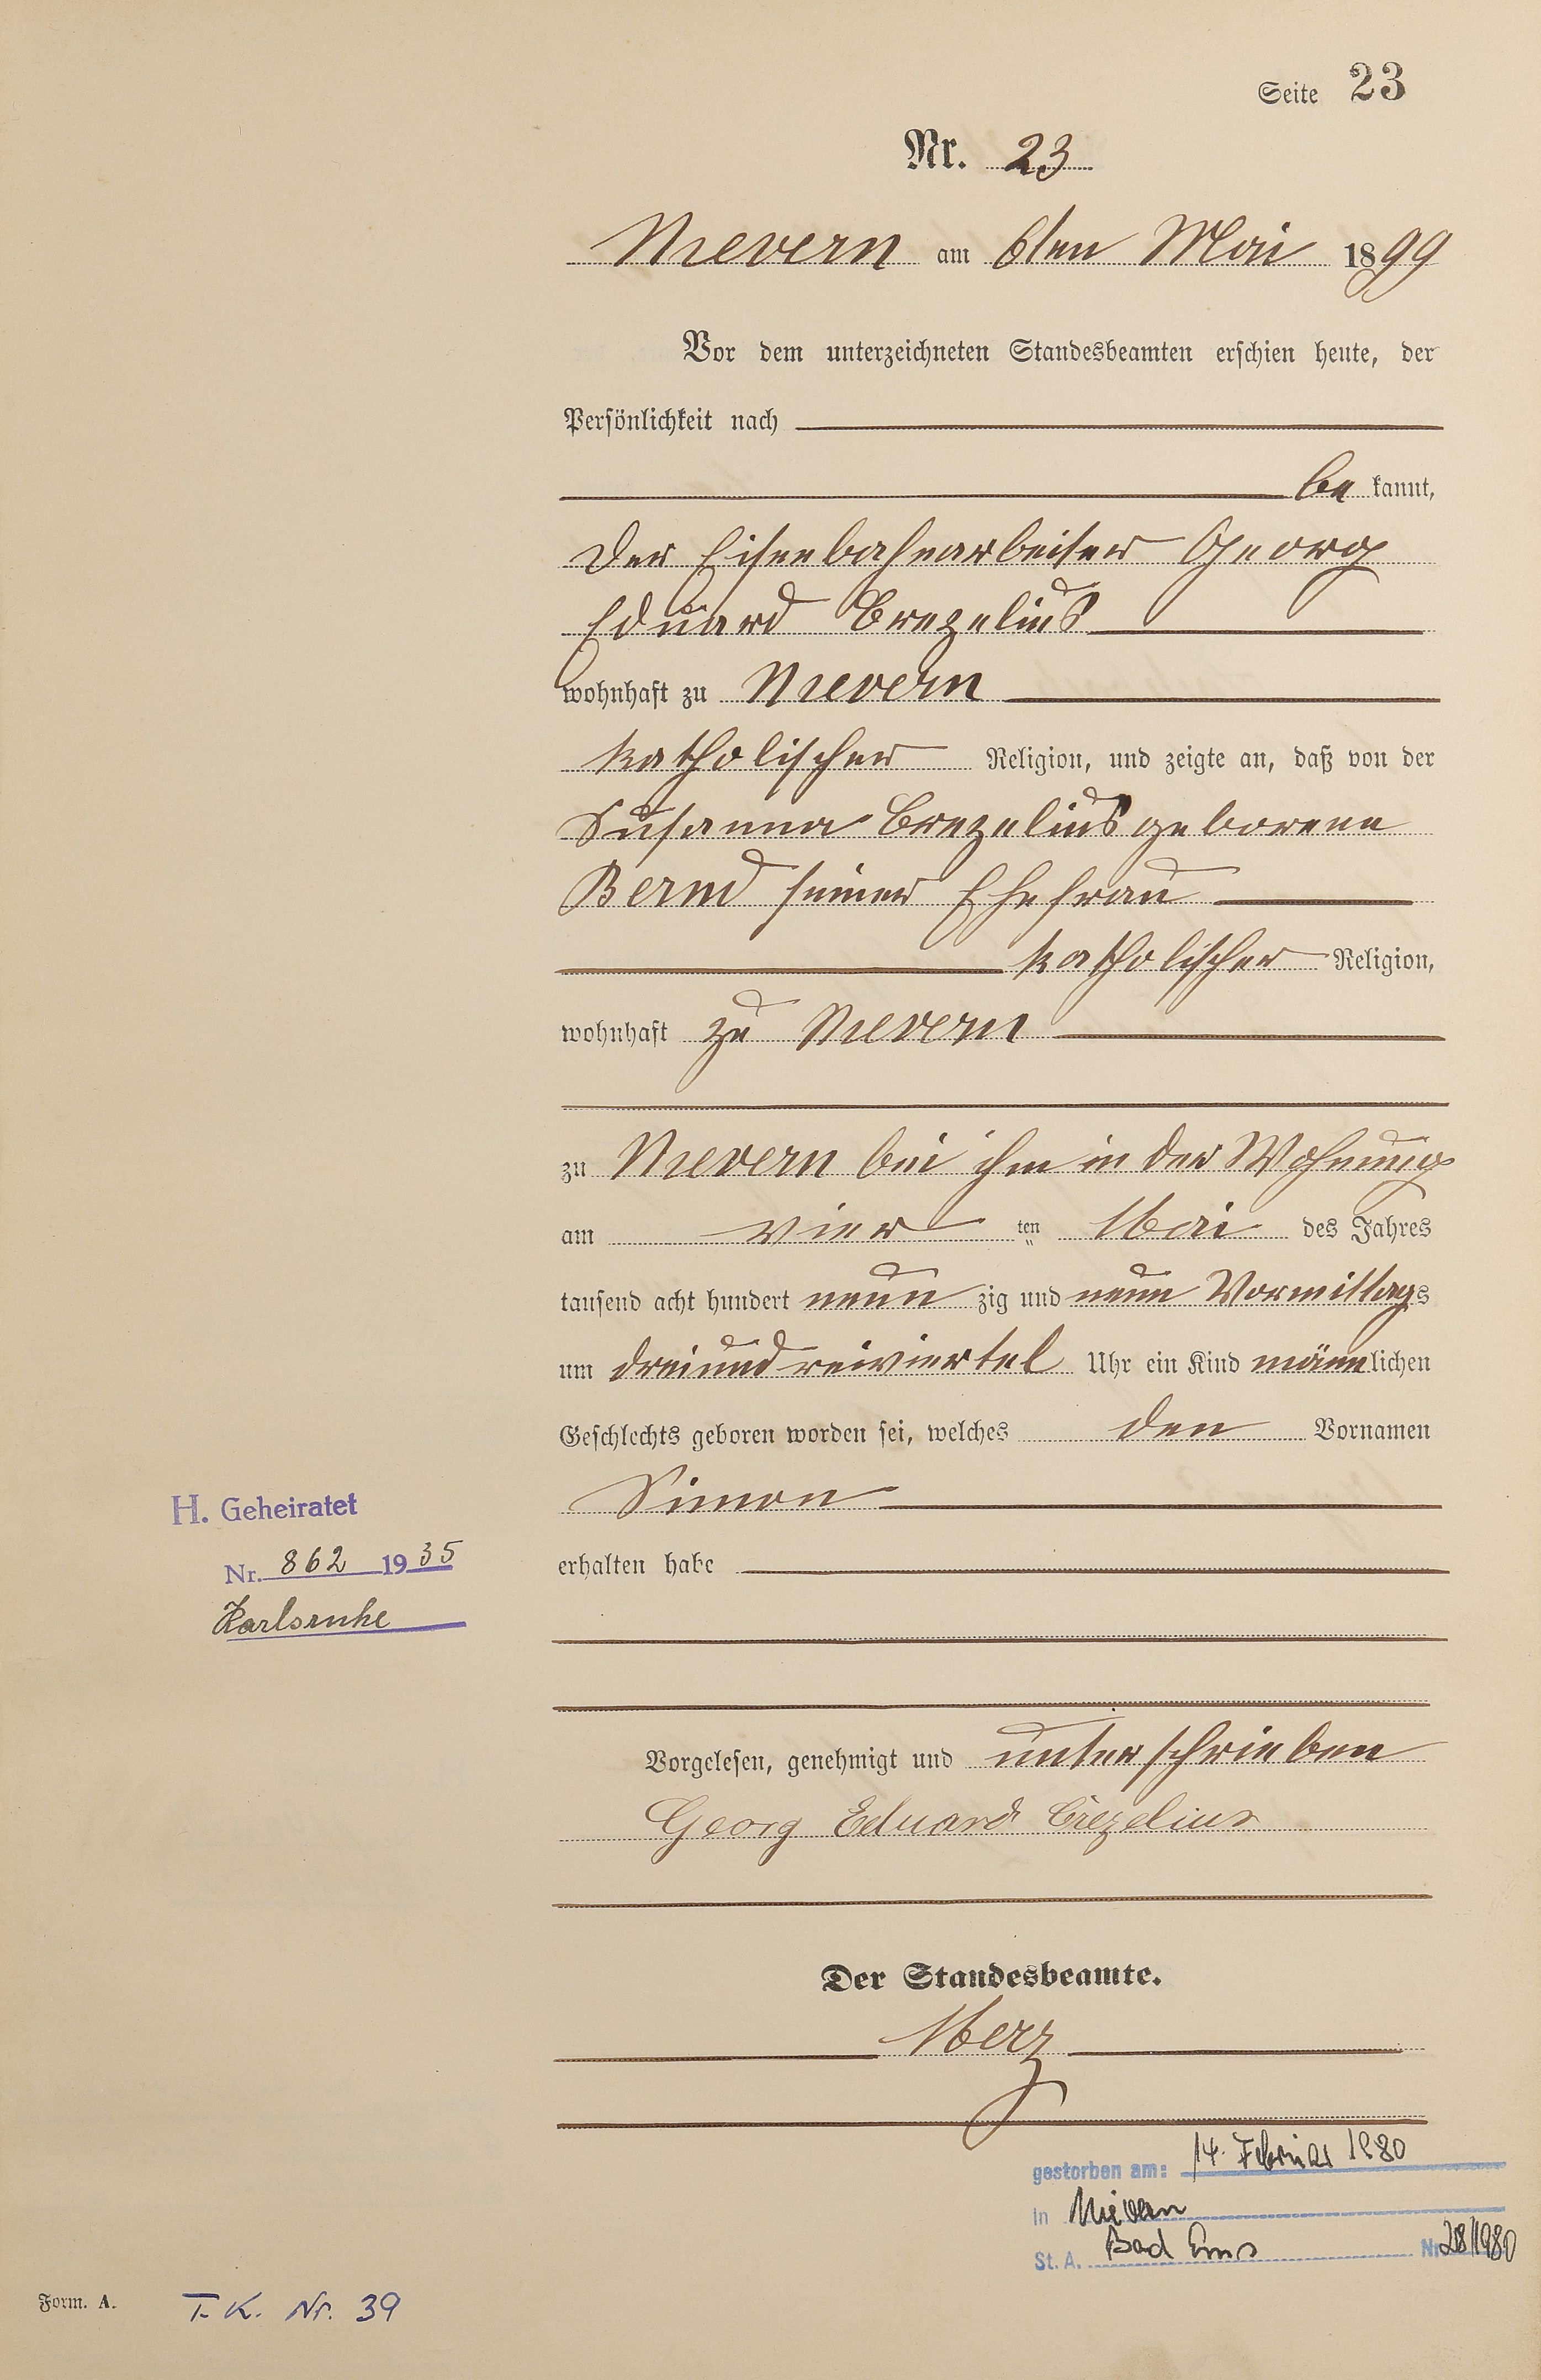 Seite 23
Nr. 23
Nievern am 6ten Mai 1899
Vor dem unterzeichneten Standesbeamten erschien heute, der
Persönlichkeit nach
bekannt,
der Eisenbahnarbeiter Georg
Eduard Crezelius
wohnhaft zu Nievern
katholischer Religion, und zeigte an, daß von der
Susanna Crezelius geborene
Bernd seiner Ehefrau
katholischer Religion,
wohnhaft zu Nievern
zu Nievern bei ihm in der Wohnung
am vier ten Mai des Jahres
tausend acht hundert neun zig und neun Vormittags
um dreiunddreiviertel Uhr ein Kind männlichen
Geschlechts geboren worden sei, welches den Vornamen
Simon
H. Geheiratet
Nr. 862 1935
Karlsruhe
erhalten habe
Vorgelesen, genehmigt und unterschrieben
Georg Eduard Crezelius
Der Standesbeamte.
Merz
gestorben am: 14. Februar 1980
in Nievern
St. A. Bad Ems Nr. 28/1980
Form. A. T. K. Nr. 39